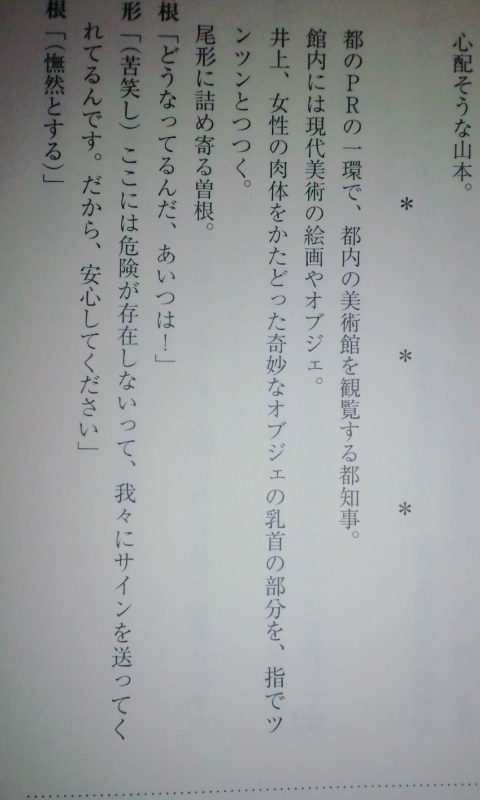 心配そうな山本。
＊　＊　＊
都のＰＲの一環で、都内の美術館を観覧する都知事。
館内には現代美術の絵画やオブジェ。
井上、女性の肉体をかたどった奇妙なオブジェの乳首の部分を、指でツ
ンツンとつつく。
尾形に詰め寄る曽根。
根「どうなってるんだ、あいつは！」
形「（苦笑し）ここには危険が存在しないって、我々にサインを送ってく
れてるんです。だから、安心してください」
根「（憮然とする）」